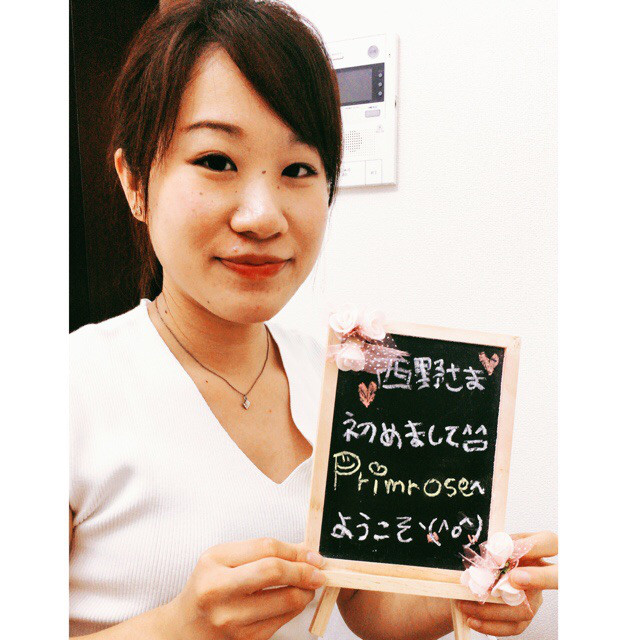 西野さま
初めまして^^
Primroseへ
ようこそヽ(^o^)